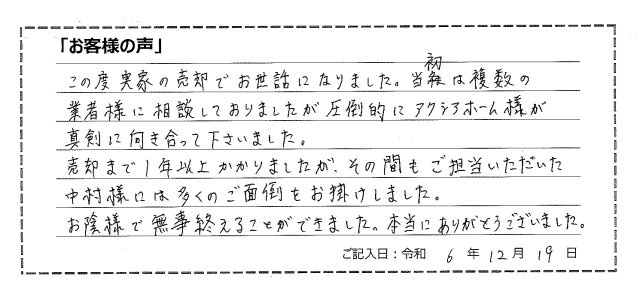 「お客様の声」
この度実家の売却でお世話になりました。当初は複数の
業者様に相談しておりましたが圧倒的にアクシアホーム様が
真剣に向き合って下さいました。
売却まで1年以上かかりましたが、その間もご担当いただいた
中村様には多くのご面倒をお掛けしました。
お陰様で無事終えることができました。本当にありがとうございました。
ご記入日：令和 6 年 12 月 19 日